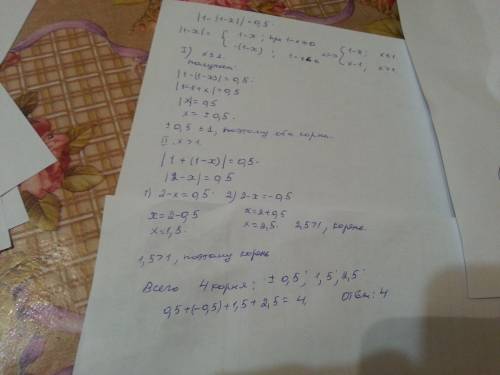 |1-|1-x||=0,5.
|1-x|= { 1-x; при 1-x≥0 -(1-x); 1-x<0 <=> { 1-x; x≤1 x-1; x>1
I) x≤1.
получаем
|1-(1-x)|=0,5.
|1-1+x|=0,5
|x|=0,5
x=±0,5.
±0,5 ≤ 1, поэтому оба корни.
II. x>1.
|1+(1-x)|=0,5.
|2-x|=0,5
1) 2-x=0,5 2) 2-x=-0,5
x=2-0,5 x=2+0,5
x=1,5. x=2,5. 2,5>1, корень
1,5>1, поэтому корень
Всего 4 корня: ±0,5; 1,5; 2,5.
0,5+(-0,5)+1,5+2,5=4. Ответ: 4